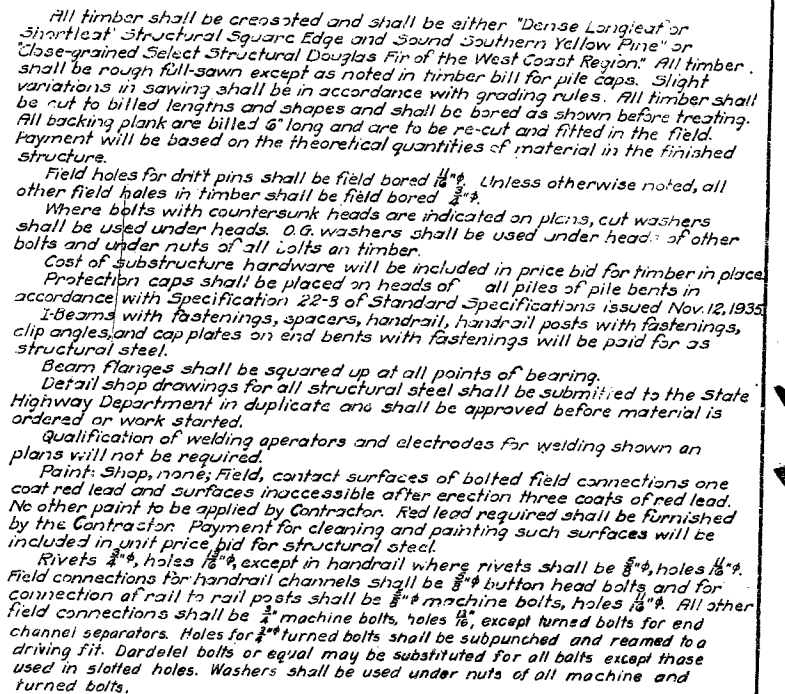 All timber shall be creosoted and shall be either "Dense Longleaf or
Shortleaf Structural Square Edge and Sound Southern Yellow Pine" or
"Close-grained Select Structural Douglas Fir of the West Coast Region." All timber
shall be rough full-sawn except as noted in timber bill for pile caps. Slight
variations in sawing shall be in accordance with grading rules. All timber shall
be cut to billed lengths and shapes and shall be bored as shown before treating.
All backing plank are billed 6" long and are to be re-cut and fitted in the field.
Payment will be based on the theoretical quantities of material in the finished
structure.
Field holes for drift pins shall be field bored 11/16"φ. Unless otherwise noted, all
other field holes in timber shall be field bored 3/4"φ.
Where bolts with countersunk heads are indicated on plans, cut washers
shall be used under heads. O.G. washers shall be used under heads of other
bolts and under nuts of all bolts on timber.
Cost of substructure hardware will be included in price bid for timber in place.
Protection caps shall be placed on heads of all piles of pile bents in
accordance with Specification 22-8 of Standard Specifications issued Nov. 12, 1935.
I-Beams with fastenings, spacers, handrail, handrail posts with fastenings,
clip angles, and cap plates on end bents with fastenings will be paid for as
structural steel.
Beam flanges shall be squared up at all points of bearing.
Detail shop drawings for all structural steel shall be submitted to the State
Highway Department in duplicate and shall be approved before material is
ordered or work started.
Qualification of welding operators and electrodes for welding shown on
plans will not be required.
Paint: Shop, none; Field, contact surfaces of bolted field connections one
coat red lead and surfaces inaccessible after erection three coats of red lead.
No other paint to be applied by Contractor. Red lead required shall be furnished
by the Contractor. Payment for cleaning and painting such surfaces will be
included in unit price bid for structural steel.
Rivets 3/4"φ, holes 13/16"φ, except in handrail where rivets shall be 5/8"φ, holes 11/16"φ.
Field connections for handrail channels shall be 5/8"φ button head bolts and for
connection of rail to rail posts shall be 5/8"φ machine bolts, holes 11/16"φ. All other
field connections shall be 3/4" machine bolts, holes 13/16", except turned bolts for end
channel separators. Holes for 3/4"φ turned bolts shall be subpunched and reamed to a
driving fit. Dardelet bolts or equal may be substituted for all bolts except those
used in slotted holes. Washers shall be used under nuts of all machine and
turned bolts.